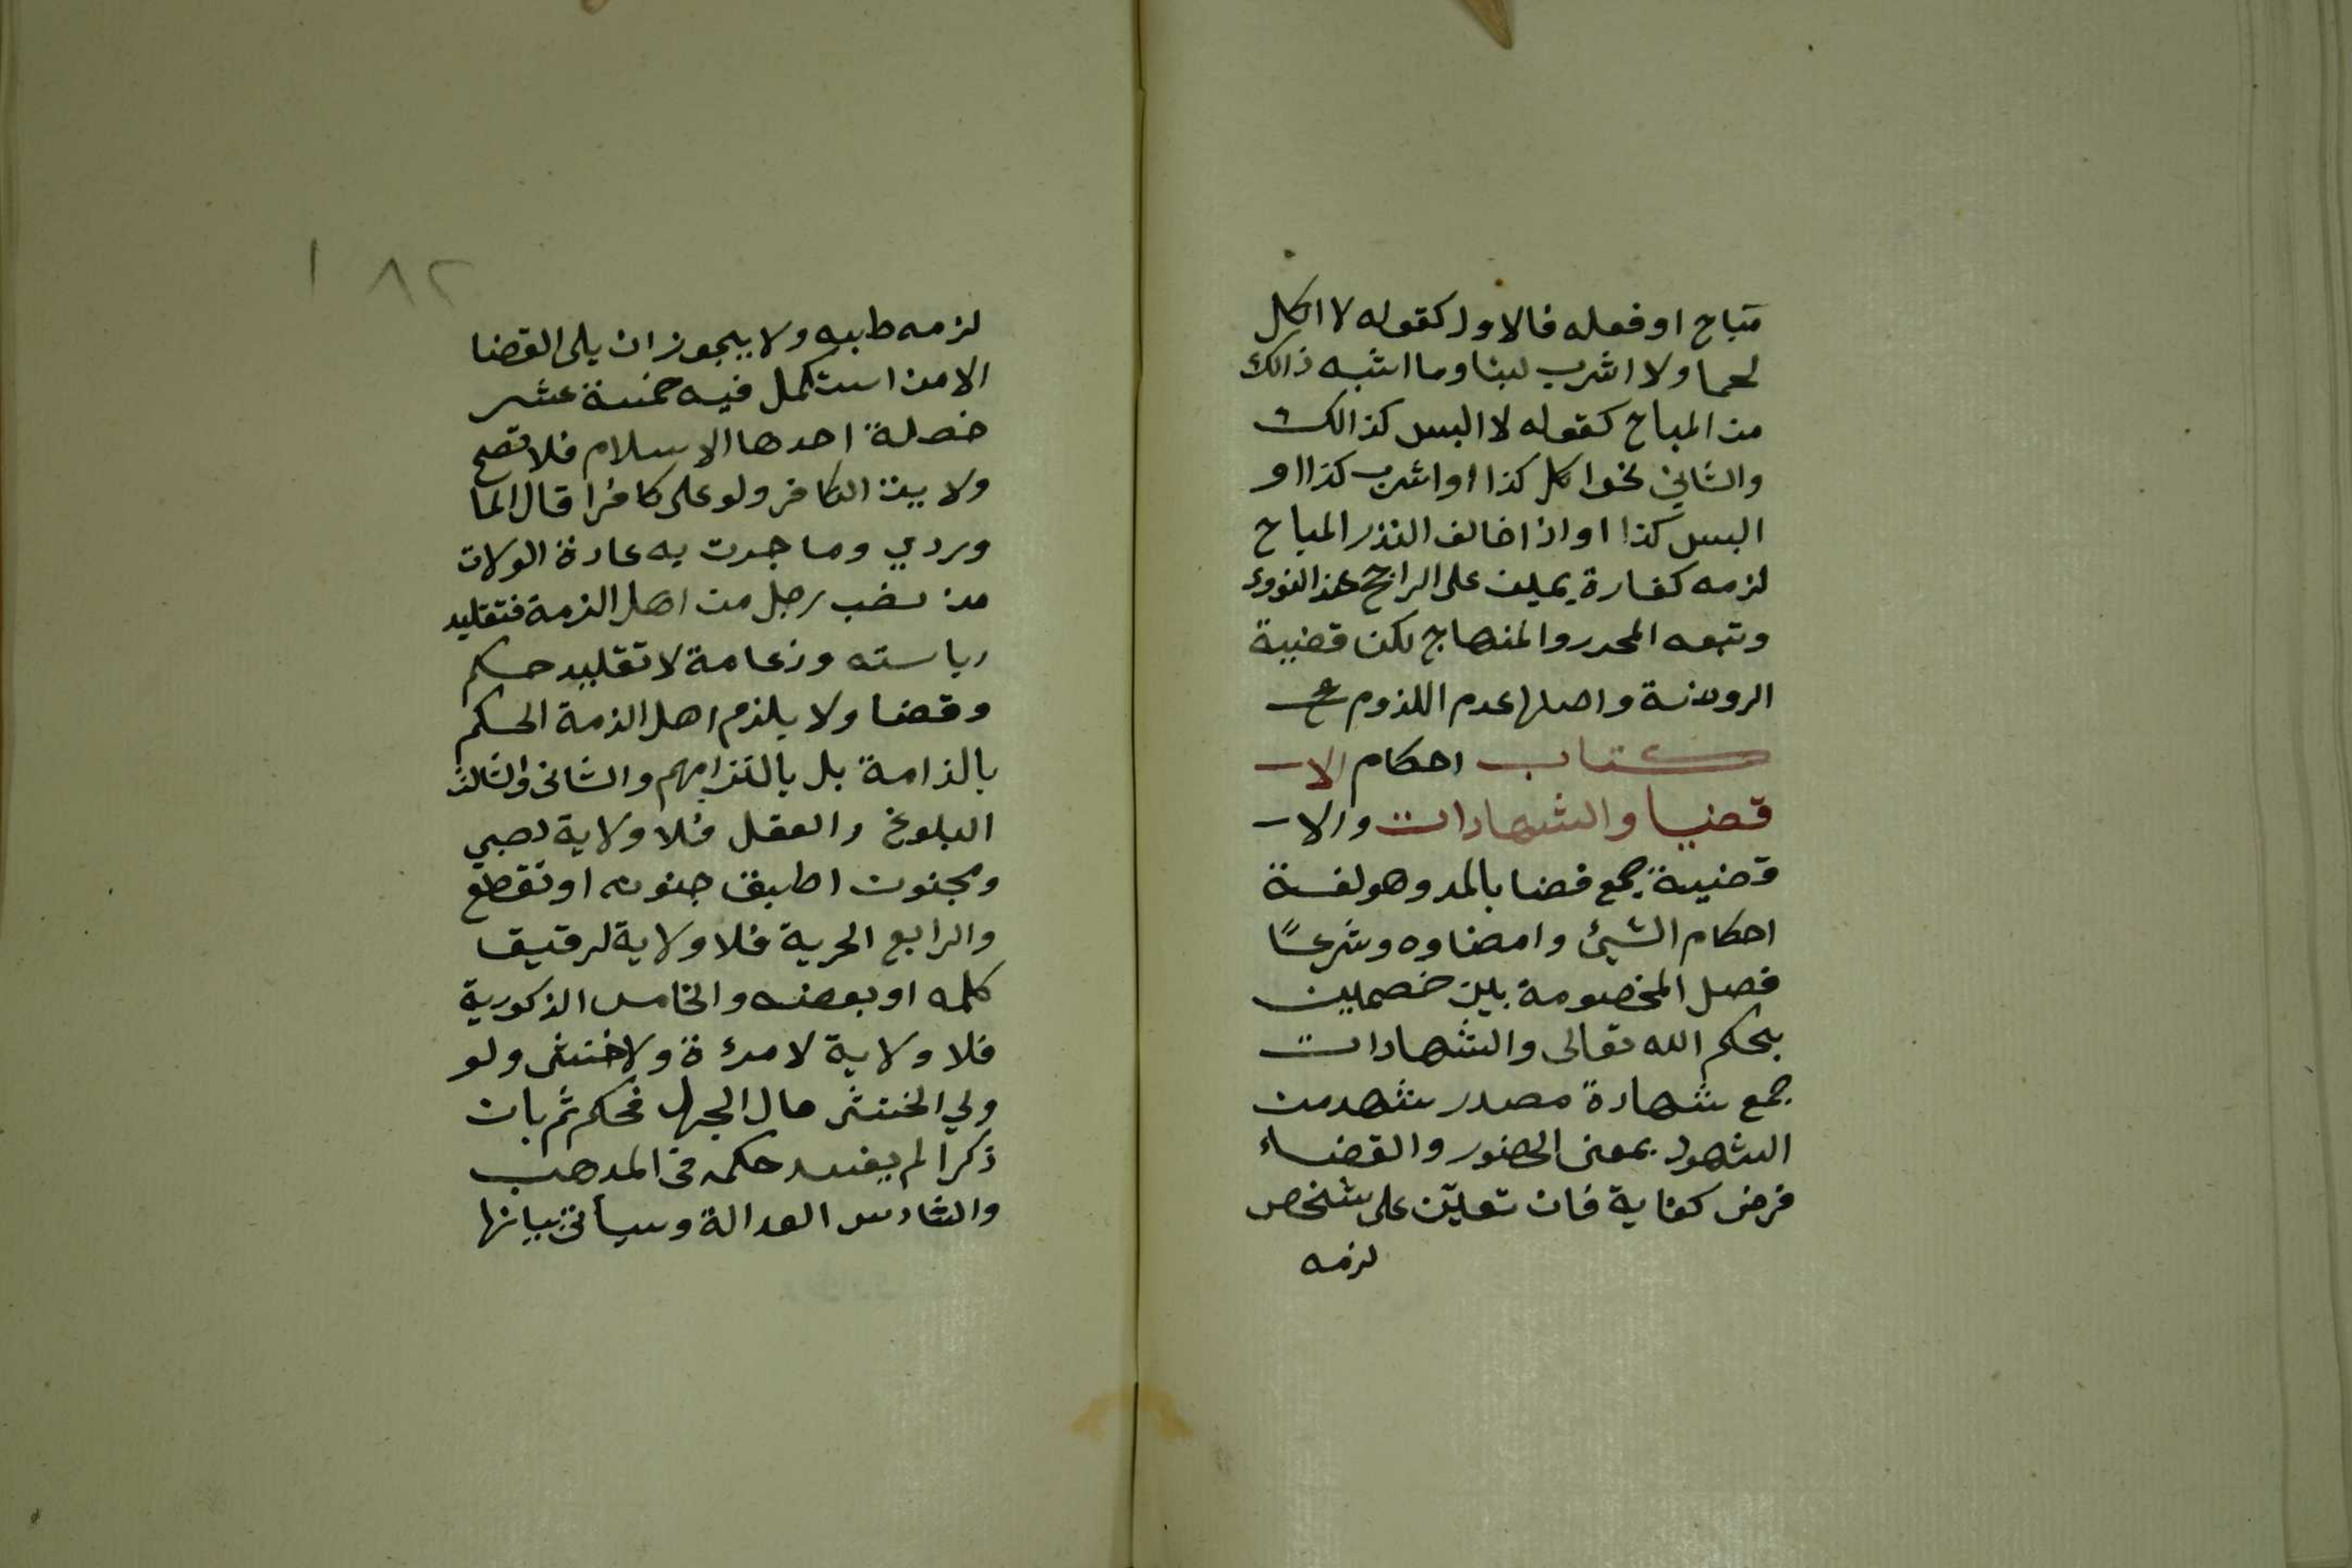 مباح او فعله فالاول كقوله لا اكل
لحما ولا اشرب لبنا وما اشبه ذالك
من المباح كقوله لا البس كذالك
والثاني نحوا كل كذا او اشرب كذا او
البس كذا او اذا خالف النذر المباح
لزمه كفارة يمين على الراجح عند النووي
وتبعه المحرر والمنهاج لكن قضية
الروضة واصلها عدم اللزوم
كتاب احكام الا
قضيا والشهادات والا
قضية جمع قضا بالمد وهو لغة
احكام الشيئ وامضاوه وشرعًا
فصل الخصومة بين خصمين
بحكم الله تعالى والشهادات
جمع شهادة مصدر شهد من
الشهود بمعنى الحضور والقضاء
فرض كفاية فان تعين على شخص
لزمه
١٨٢
لزمه طلبه ولا يجوز ان يلى القضا
الا من استكمل فيه خمسة عشر
خصلة احدها الاسلام فلا تصح
ولاية الكافر ولو على كافرا قال الما
وردي وما جرت به عادة الولات
من نصب رجل من اهل الذمة فتقليد
رياسته وزعامة لا تقليد حكم
وقضا ولا يلزم اهل الذمة الحكم
بالزامة بل بالتزامهم والثانى والثالث
البلوغ والعقل فلا ولاية لصبي
ومجنون اطبق جنونه او تقطع
والرابع الحرية فلا ولاية لرقيق
كله او بعضه والخامس الذكورية
فلا ولاية لامرءة ولا خنثى ولو
ولي الخنثى حال الجهل فحكم ثم بان
ذكرا لم يفسد حكمه فى المدهب
والسادس العدالة وسيأتى بيانها